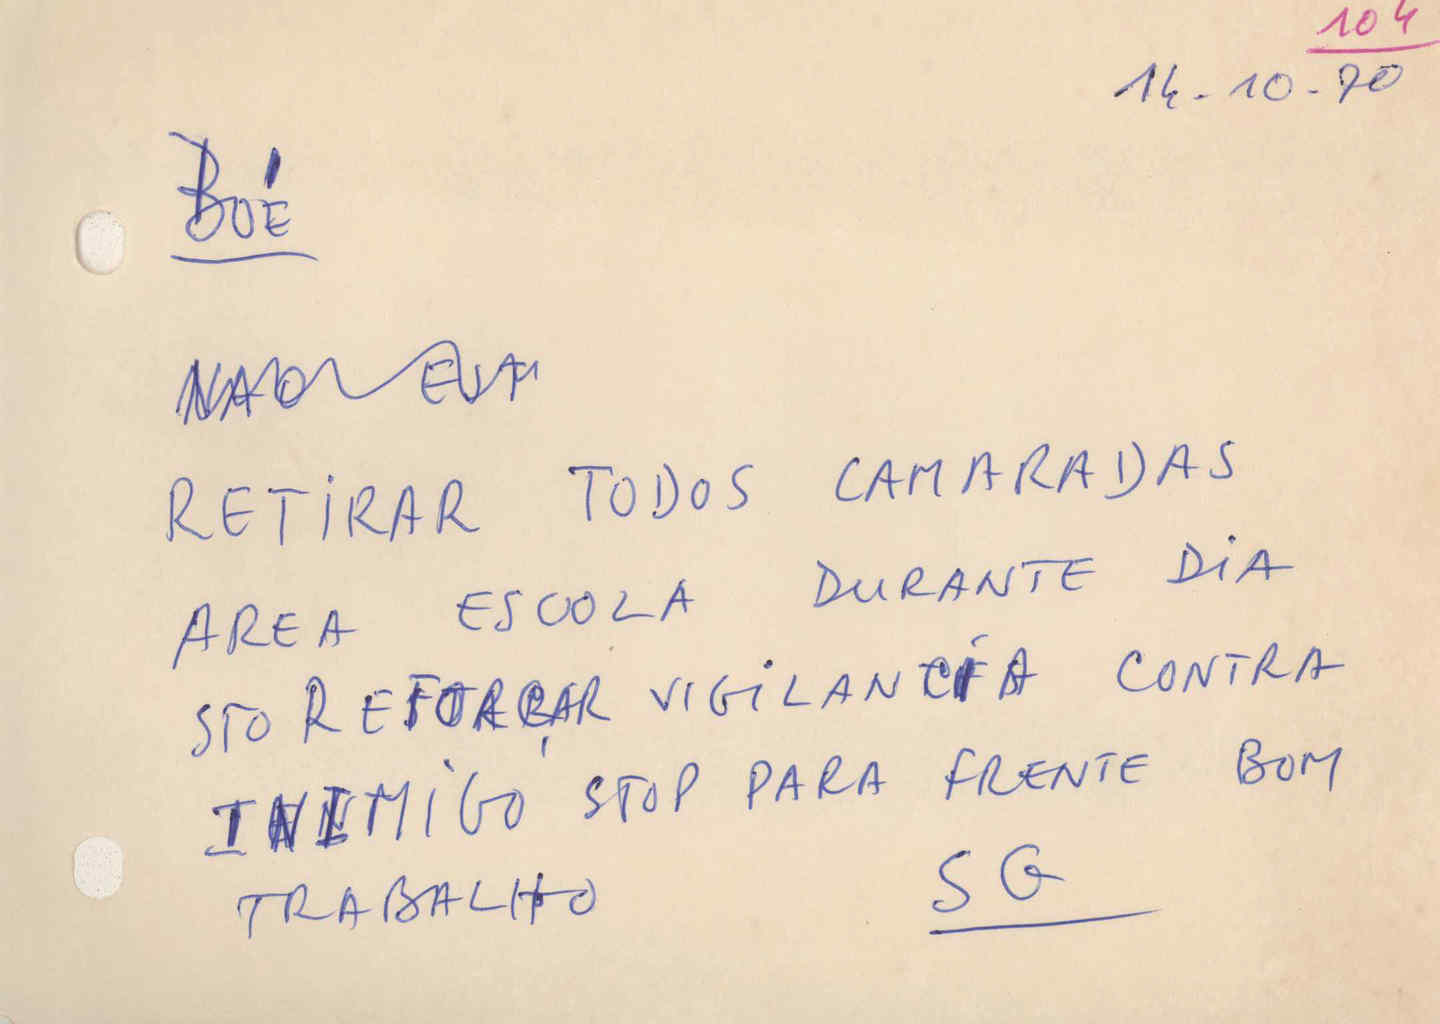 104
14-10-70
BOÉ
NAO
RETIRAR TODOS CAMARADAS
AREA ESCOLA DURANTE DIA
STO REFORÇAR VIGILANCIA CONTRA
INIMIGO STOP PARA FRENTE BOM
TRABALHO SG